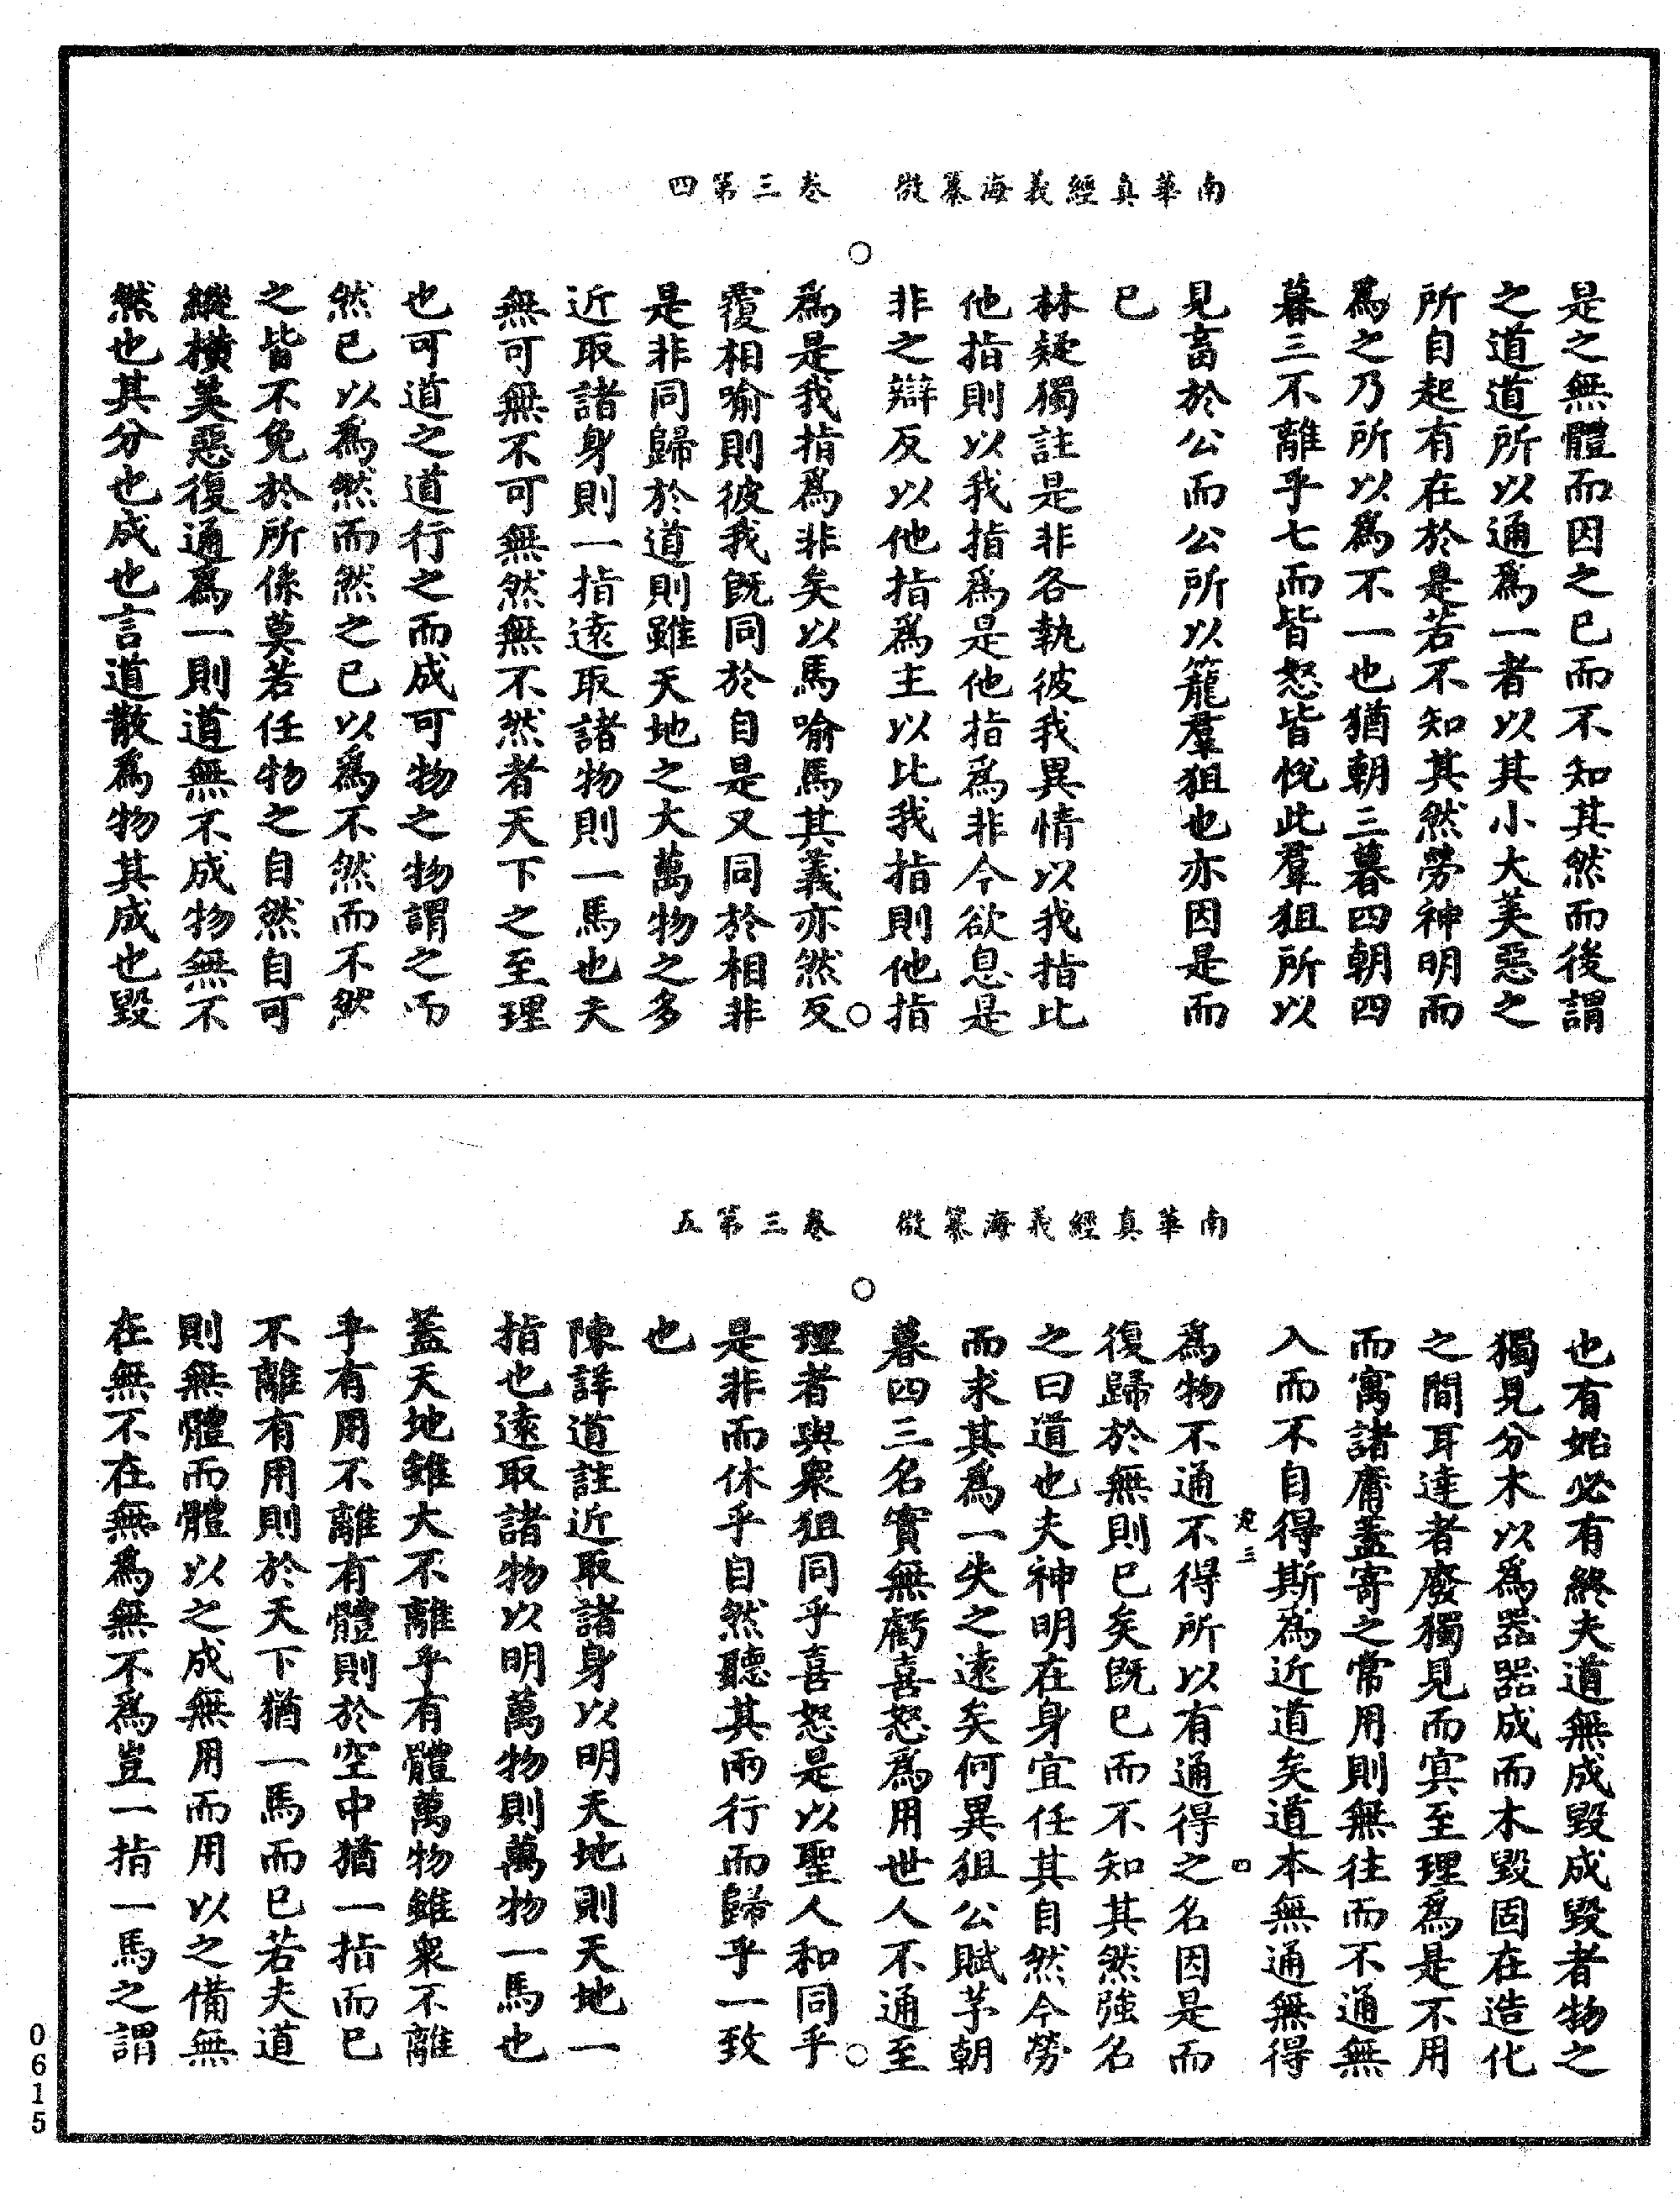 南華真經義海纂微　卷三第四
是之無體而因之已而不知其然而後謂
之道道所以通爲一者以其小大美惡之
所自起有在於是若不知其然勞神明而
爲之乃所以爲不一也猶朝三暮四朝四
暮三不離乎七而皆怒皆悅此羣狙所以
見畜於公而公所以籠羣狙也亦因是而
已
林疑獨註是非各執彼我異情以我指比
他指則以我指爲是他指爲非今欲息是
非之辯反以他指爲主以比我指則他指
爲是我指爲非矣以馬喻馬其義亦然反
覆相喻則彼我旣同於自是又同於相非
是非同歸於道則雖天地之大萬物之多
近取諸身則一指遠取諸物則一馬也夫
無可無不可無然無不然者天下之至理
也可道之道行之而成可物之物謂之而
然已以爲然而然之已以爲不然而不然
之皆不免於所係莫若任物之自然自可
縱橫美惡復通爲一則道無不成物無不
然也其分也成也言道散爲物其成也毀
南華真經義海纂微　卷三第五
也有始必有終夫道無成毀成毀者物之
獨見分木以爲器器成而木毀固在造化
之間耳達者廢獨見而寞至理爲是不用
而寓諸庸蓋寄之常用則無往而不通無
入而不自得斯爲近道矣道本無通無得
三
四
爲物不通不得所以有通得之名因是而
復歸於無則已矣旣已而不知其然強名
之曰道也夫神明在身宜任其自然今勞
而求其爲一失之遠矣何異狙公賦芧朝
暮四三名實無虧喜怒爲用世人不通至
理者與衆狙同乎喜怒是以聖人和同乎
是非而休乎自然聽其兩行而歸乎一致
也
陳詳道註近取諸身以明天地則天地一
指也遠取諸物以明萬物則萬物一馬也
蓋天地雖大不離乎有體萬物雖衆不離
乎有用不離有體則於空中猶一指而已
不離有用則於天下猶一馬而已若夫道
則無體而體以之成無用而用以之備無
在無不在無爲無不爲豈一指一馬之謂
0615